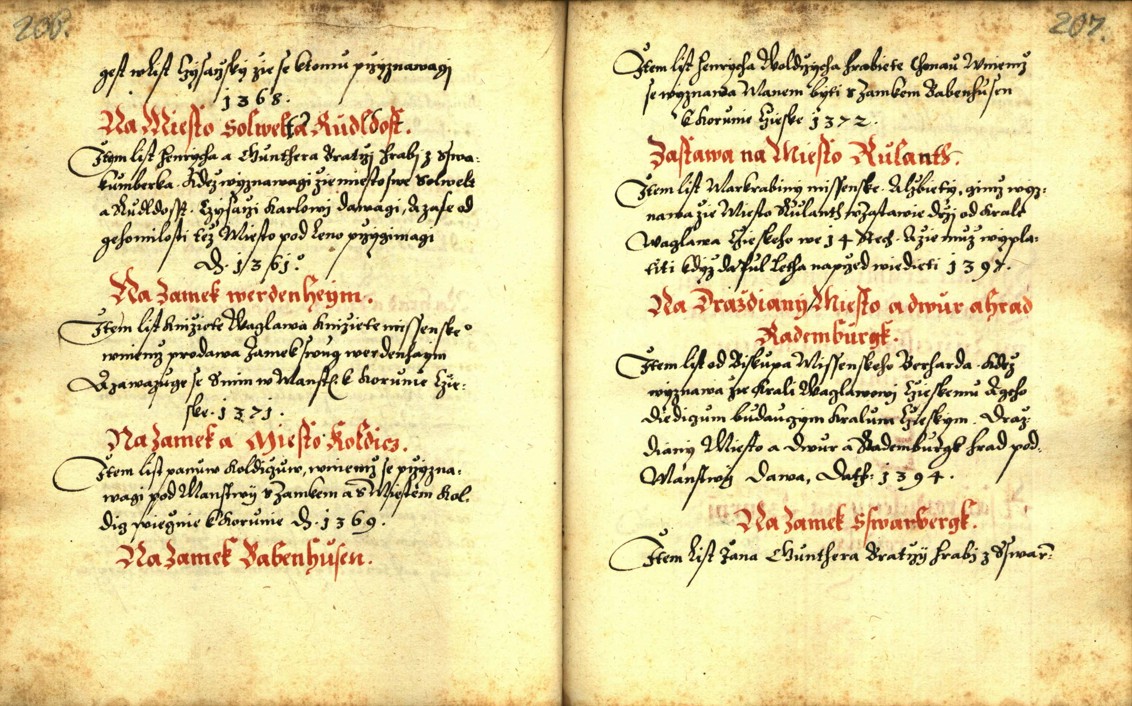 206.
gest w list Cysarzsky zie se k tomu przyznawagj
1368.
Na Miesto Solwelt a Rudldosst.
Item list Henrycha a Gunthera Bratrzj hrabj z Swa:
tumberka. Kdez wyznawagi zie miesto swe Solwelt
a Rudldosst. Cysarzi Karlowj dawagi, A zase od
geho milosti tez Miesto pod leno przygimagi
D. 1361.
Na zamek werdenheym.
Item list knizete Waglawa knizete missenske°
w niemz prodawa zamek swug werdenhaym
A zawazuge se S nim w Manst: k Korunie Cze:
ske. 1371.
Na zamek a Miesto Koldicz.
Item list panuw Koldiczuw, w niemz se przyzna:
wagi pod Manstwij s zamkem a s Miestem Kol.
dicz wiegnie k Korunie D. 1369.
Na zamek Babenhusen.
207.
Item list Henrycha Woldrzycha hrabiete Honau W niemz
se wyznawa Manem byti s zamkem Babenhusen
k Korunie Czeske 1372.
Zastawa na Miesto Rulanth.
Item list Markrabiny missenske. Alzbiety, gimz wyz:
nawa zie Miesto Rulanth w zastawie drzi od krale
Waglawa Czeskeho we 14 Stech. A zie muz wypla:
titi kdyz da pul letha naprzed wiedieti 1397.
Na Drazdiany Miesto a dwur a hrad
Rademburgk.
Item list od Biskupa Missenskeho Berharda. Kdez
wyznawa zie Krali Waglawowj Czeskemu A geho
diedicum budaucym kralum Czeskym. Draz:
diany Miesto a dwur a Rademburgk hrad pod.
Manstwij dawa, Dath: 1394.
Na zamek Sswarbergk.
Item list Jana Gunthera Bratrzj hrabj z Sswar: